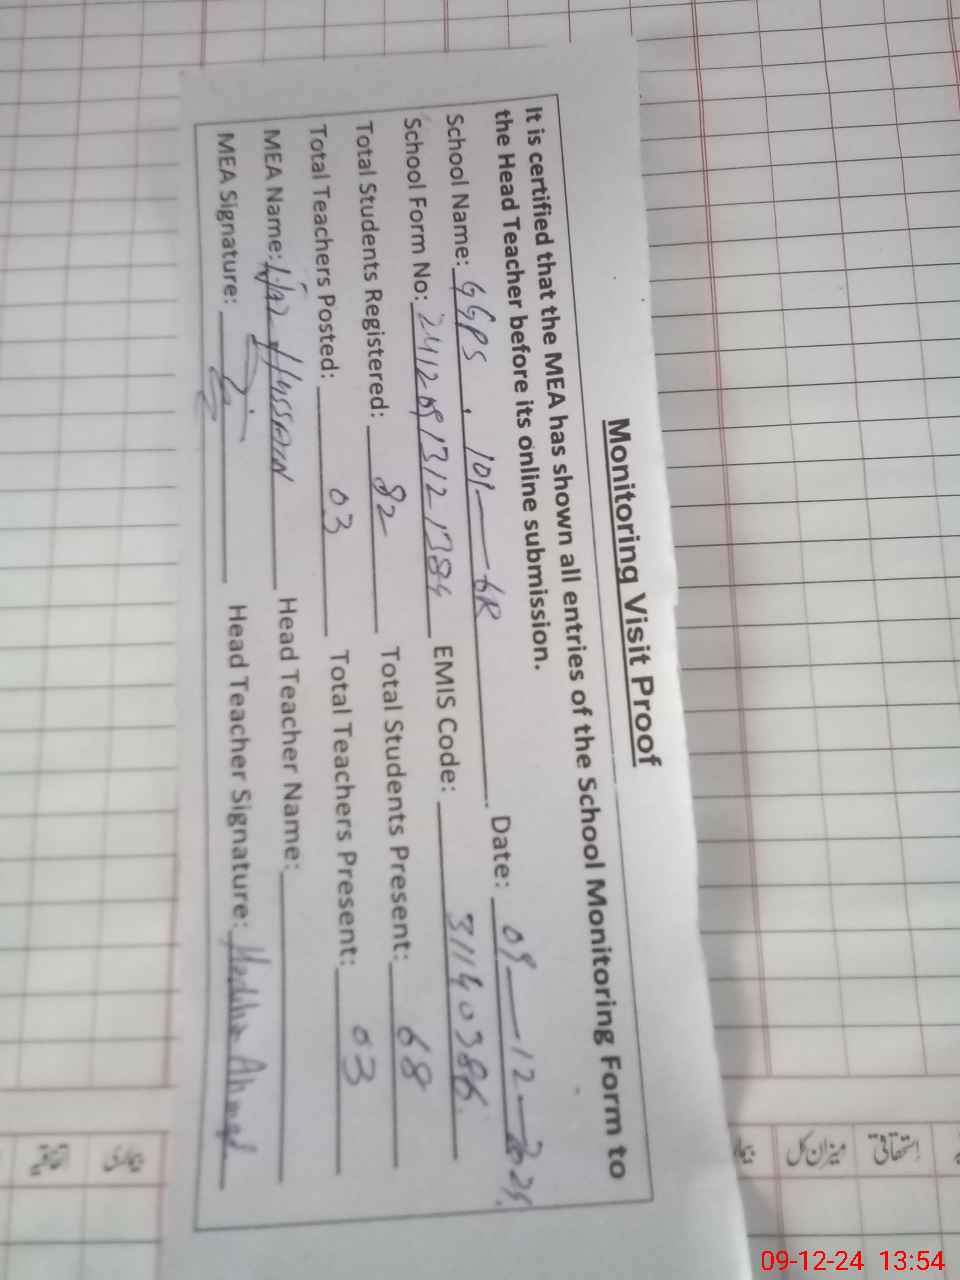 Monitoring Visit Proof
It is certified that the MEA has shown all entries of the School Monitoring Form to
the Head Teacher before its online submission.
School Name: GGPS, 101-6R Date: 09-12-2024
School Form No: 24120913121384 EMIS Code: 31140386
Total Students Registered: 82 Total Students Present: 68
Total Teachers Posted: 03 Total Teachers Present: 03
MEA Name: Hussain Head Teacher Name:
MEA Signature: Head Teacher Signature: Madiha Ahmad
میزان کل
09-12-24 13:54